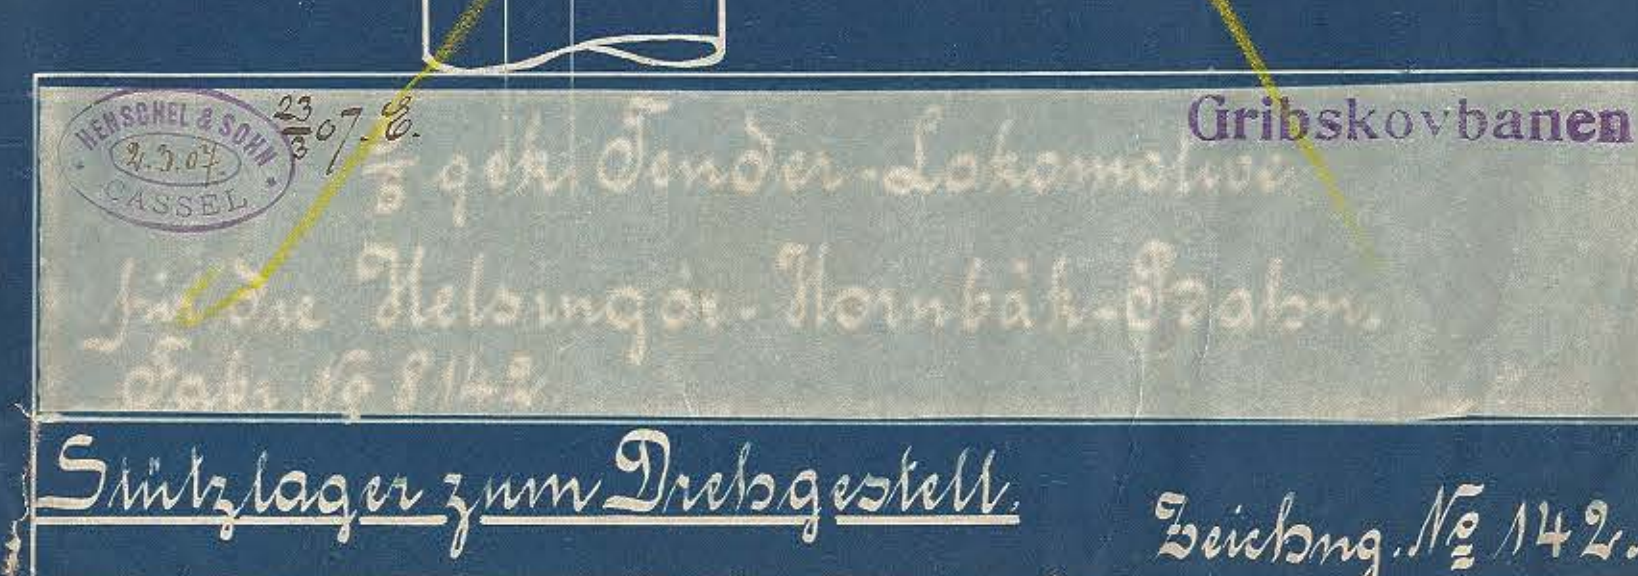 HENSCHEL & SOHN
2.3.07.
CASSEL
23/3 07. E.
Gribskovbanen
/5 gek. Tender-Lokomotive
für die Helsingör-Hornbäk-Bahn.
Fabr. No 8142
Stützlager zum Drehgestell.
Zeichng. No 142.